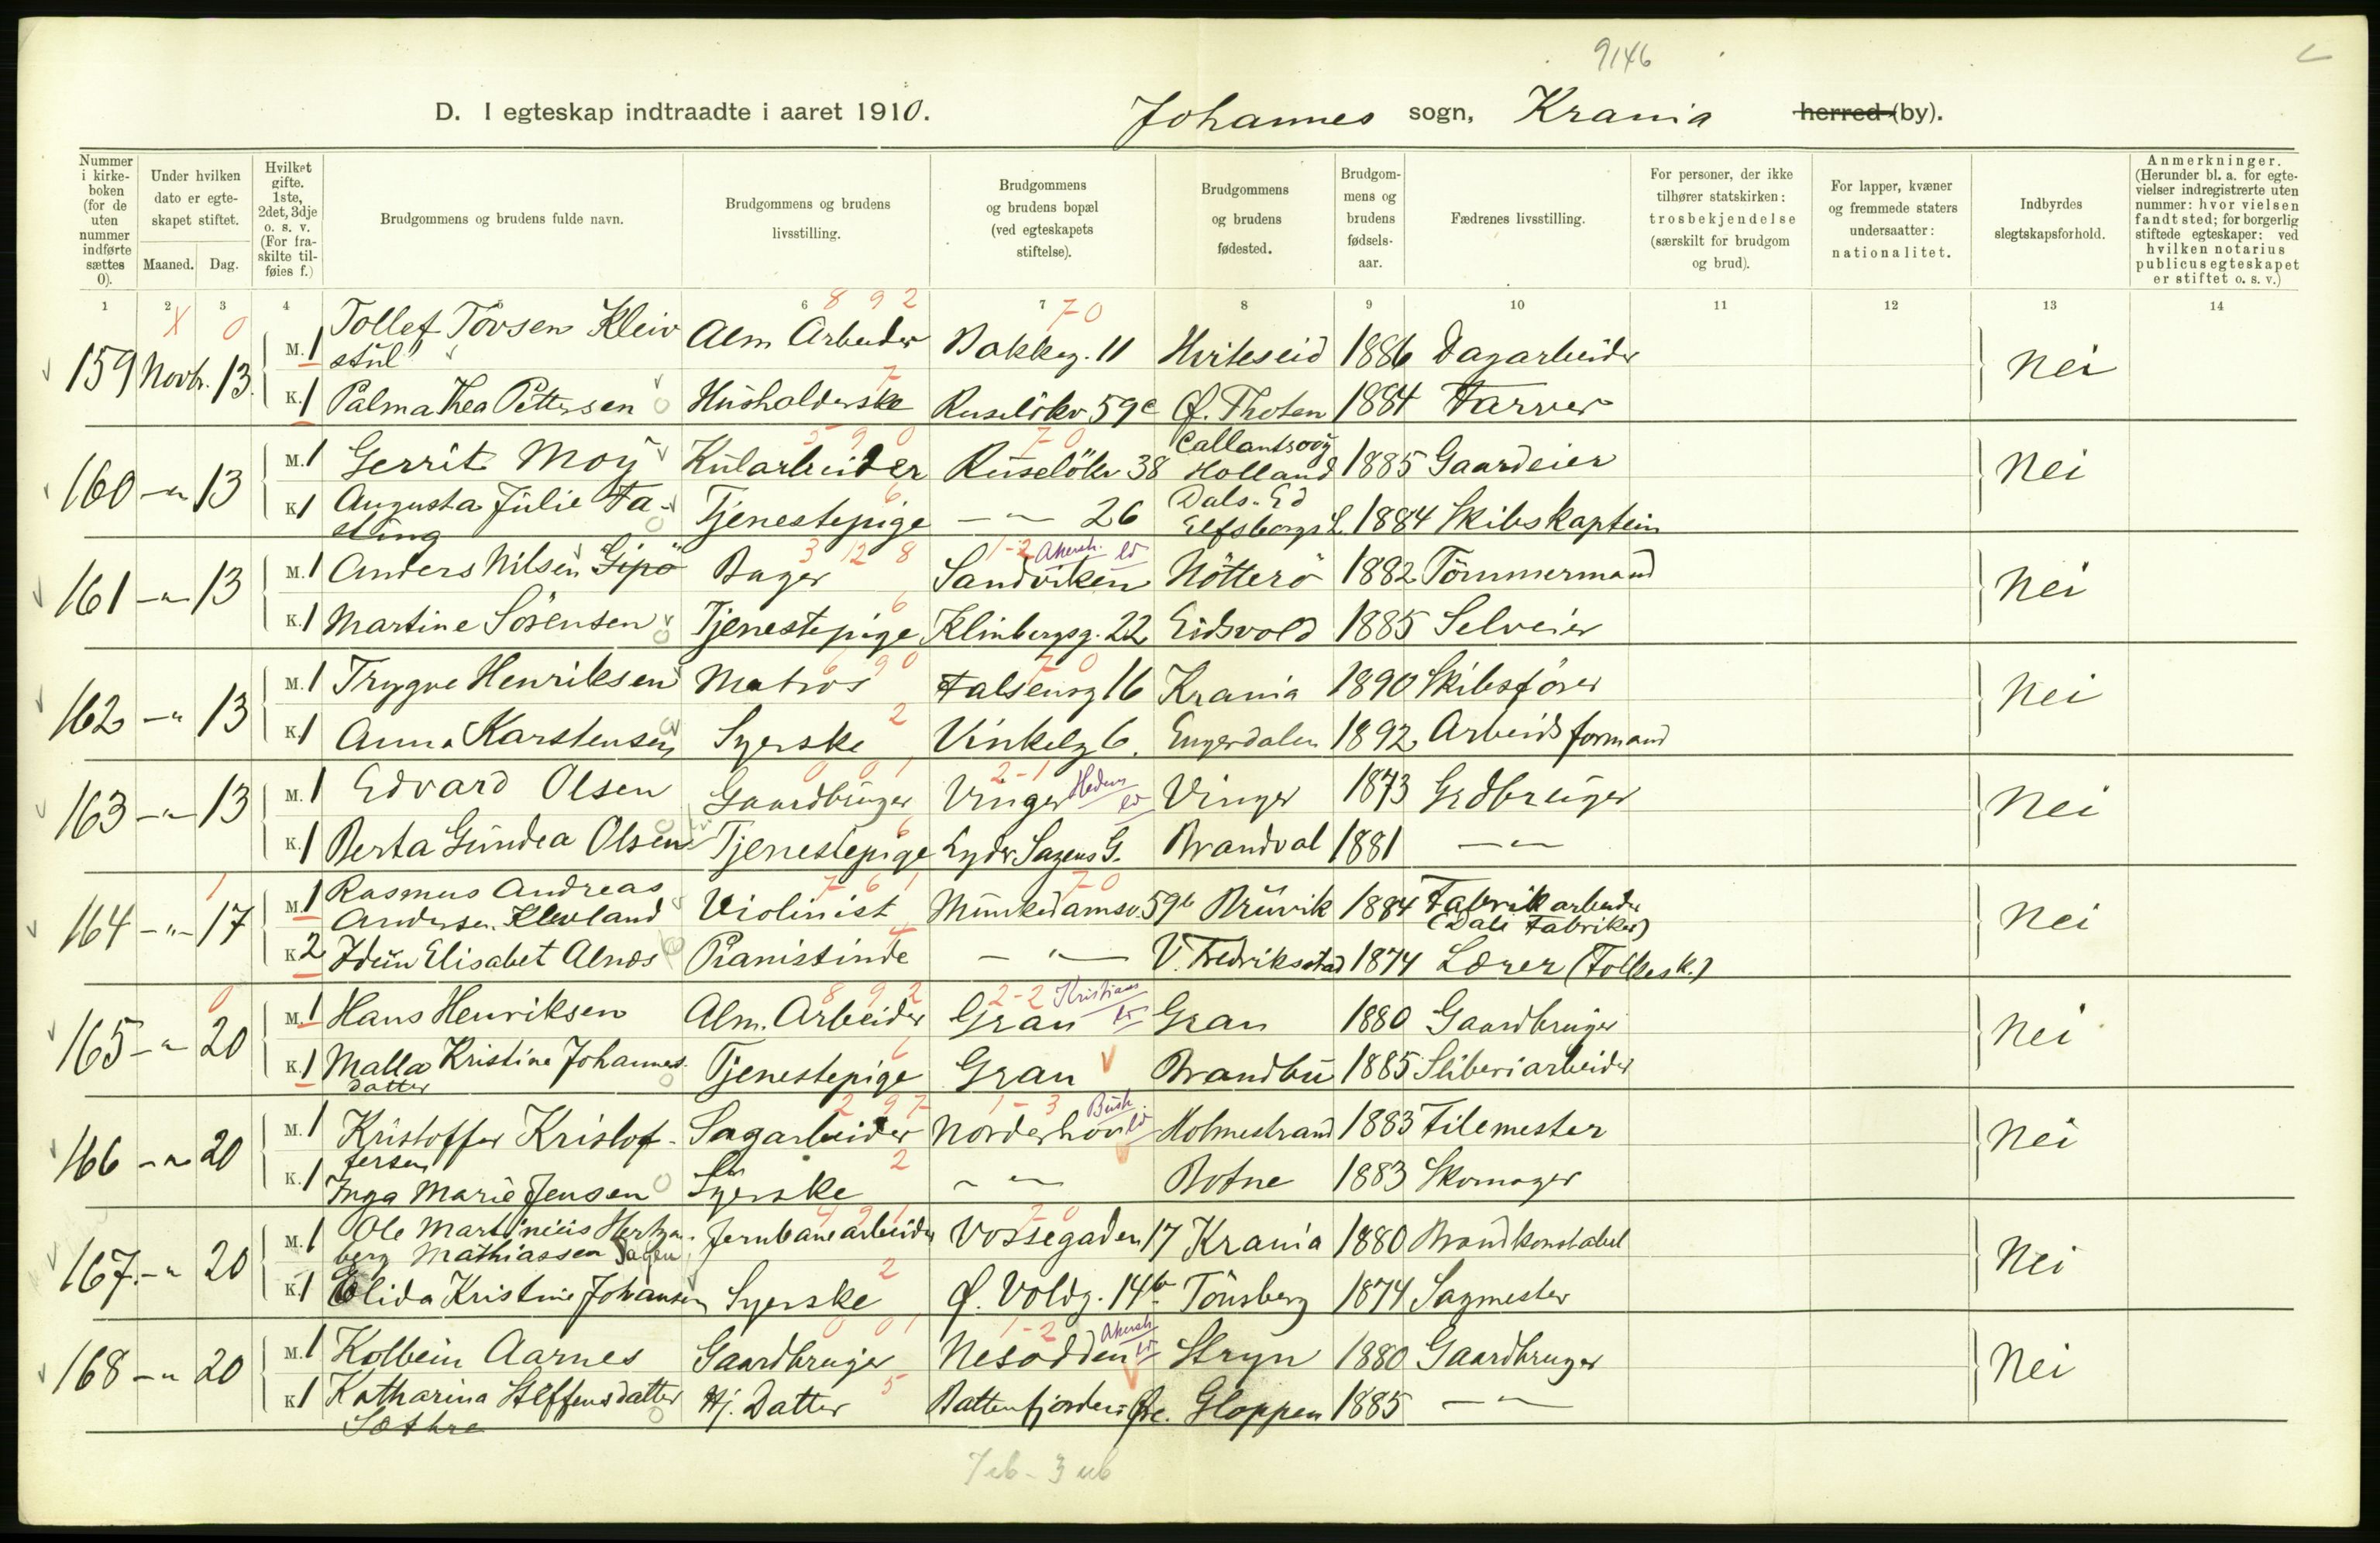 9146
D. I egteskap indtraadte i aaret 1910. Johannes sogn, Krania herred (by).
Nummer i kirkeboken (for de uten nummer indførte sættes 0). Under hvilken dato er egteskapet stiftet. Maaned. Dag. Hvilket gifte. 1ste, 2det, 3dje o. s. v. (For fraskilte tilføies f.) Brudgommens og brudens fulde navn. Brudgommens og brudens livsstilling. Brudgommens og brudens bopæl (ved egteskapets stiftelse). Brudgommens og brudens fødested. Brudgommens og brudens fødselsaar. Fædrenes livsstilling. For personer, der ikke tilhører statskirken: trosbekjendelse (særskilt for brudgom og brud). For lapper, kvæner og fremmede staters undersaatter: nationalitet. Indbyrdes slegtskapsforhold. Anmerkninger. (Herunder bl. a. for egtevielser indregistrerte uten nummer: hvor vielsen fandt sted; for borgerlig stiftede egteskaper: ved hvilken notarius publicus egteskapet er stiftet o. s. v.)
1 2 3 4 6 7 8 9 10 11 12 13 14
X 0 8 9 2 7 0
159 Novbr. 13. M. 1 Tollef Tovsen Kleivstul Alm Arbeider Bakkeg. 11 Hviteseid 1886 Dagarbeider Nei
7
K. 1 Palma Thea Pettersen Husholderske Ruseløkv 59c Ø. Thoten 1884 Farver
5 9 0 7 0
160 -"- 13 M. 1 Gerrit Moy Kularbeider Ruseløkv 38 Callantsoog Holland 1885 Gaardeier Nei
6
K 1 Augusta Julie Fasting Tjenestepige -"- 26 Dals-Ed Elfsborgs L. 1884 Skibskaptein
3 12 8 1-2 Akersh. ld
161 -"- 13 M. 1 Anders Nilsen Gipö Bager Sandviken Nötterö 1882 Tömmermand Nei
6
K. 1 Martine Sörensen Tjenestepige Klinbergsg. 22 Eidsvold 1885 Selveier
6 9 0 7 0
162 -"- 13 M. 1 Trygve Henriksen Matros Falsensg 16 Krania 1890 Skibsförer Nei
2
K. 1 Anna Karstensen Syerske Vinkelg 6. Engerdalen 1892 Arbeidsformand
0 0 1 2-1 Hedem ld
163 -"- 13 M. 1 Edvard Olsen Gaardbruger Vinger Vinger 1873 Grdbruger Nei
6
K. 1 Berta Gundea Olsen Tjenestepige Lyder Sagens G. Brandval 1881 -"-
1 7 6 1 7 0
164 -"- 17 M 1 Rasmus Andreas Andersen Kleveland Violinist Munkedamsv. 59b Bruvik 1884 Fabrikarbeider (Dale Fabriker) Nei
4
K 2 Idun Elisabet Alnæs Pianistinde -"- V. Fredriksstad 1874 Lærer (Folkesk.)
0 8 9 2 2-2 Kristians ld
165 -"- 20 M. 1 Hans Henriksen Alm. Arbeider Gran Gran 1880 Gaardbruger Nei
K. 1 Malla Kristine Johannesdatter Tjenestepige Gran Brandbu 1885 Sliberiarbeider
2 9 7 1-3 Busk. ld
166 -"- 20 M. 1 Kristoffer Kristoffersen Sagarbeider Norderhov Holmestrand 1883 Filemester Nei
2
K. 1 Inga Marie Jensen Syerske -"- Botne 1883 Skomager
4 9 1 7 0
167. -"- 20 M. 1 Ole Martinius Hertzberg Mathiassen Sagen Jernbanearbeider Vossegaden 17 Krania 1880 Brandkonstabel Nei
2
K 1 Elida Kristine Johansen Syerske Ø. Voldg. 14b Tönsberg 1874 Sagmester
0 0 1 1-2 Akersh ld
168 -"- 20 M. 1 Kolbein Aarnes Gaardbruger Nesodden Stryn 1880 Gaardbruger Nei
5
K 1 Katharina Steffensdatter Sæthre Hj. Datter Battenfjordsör. Gloppen 1885 -"-
7 ib - 3 ub